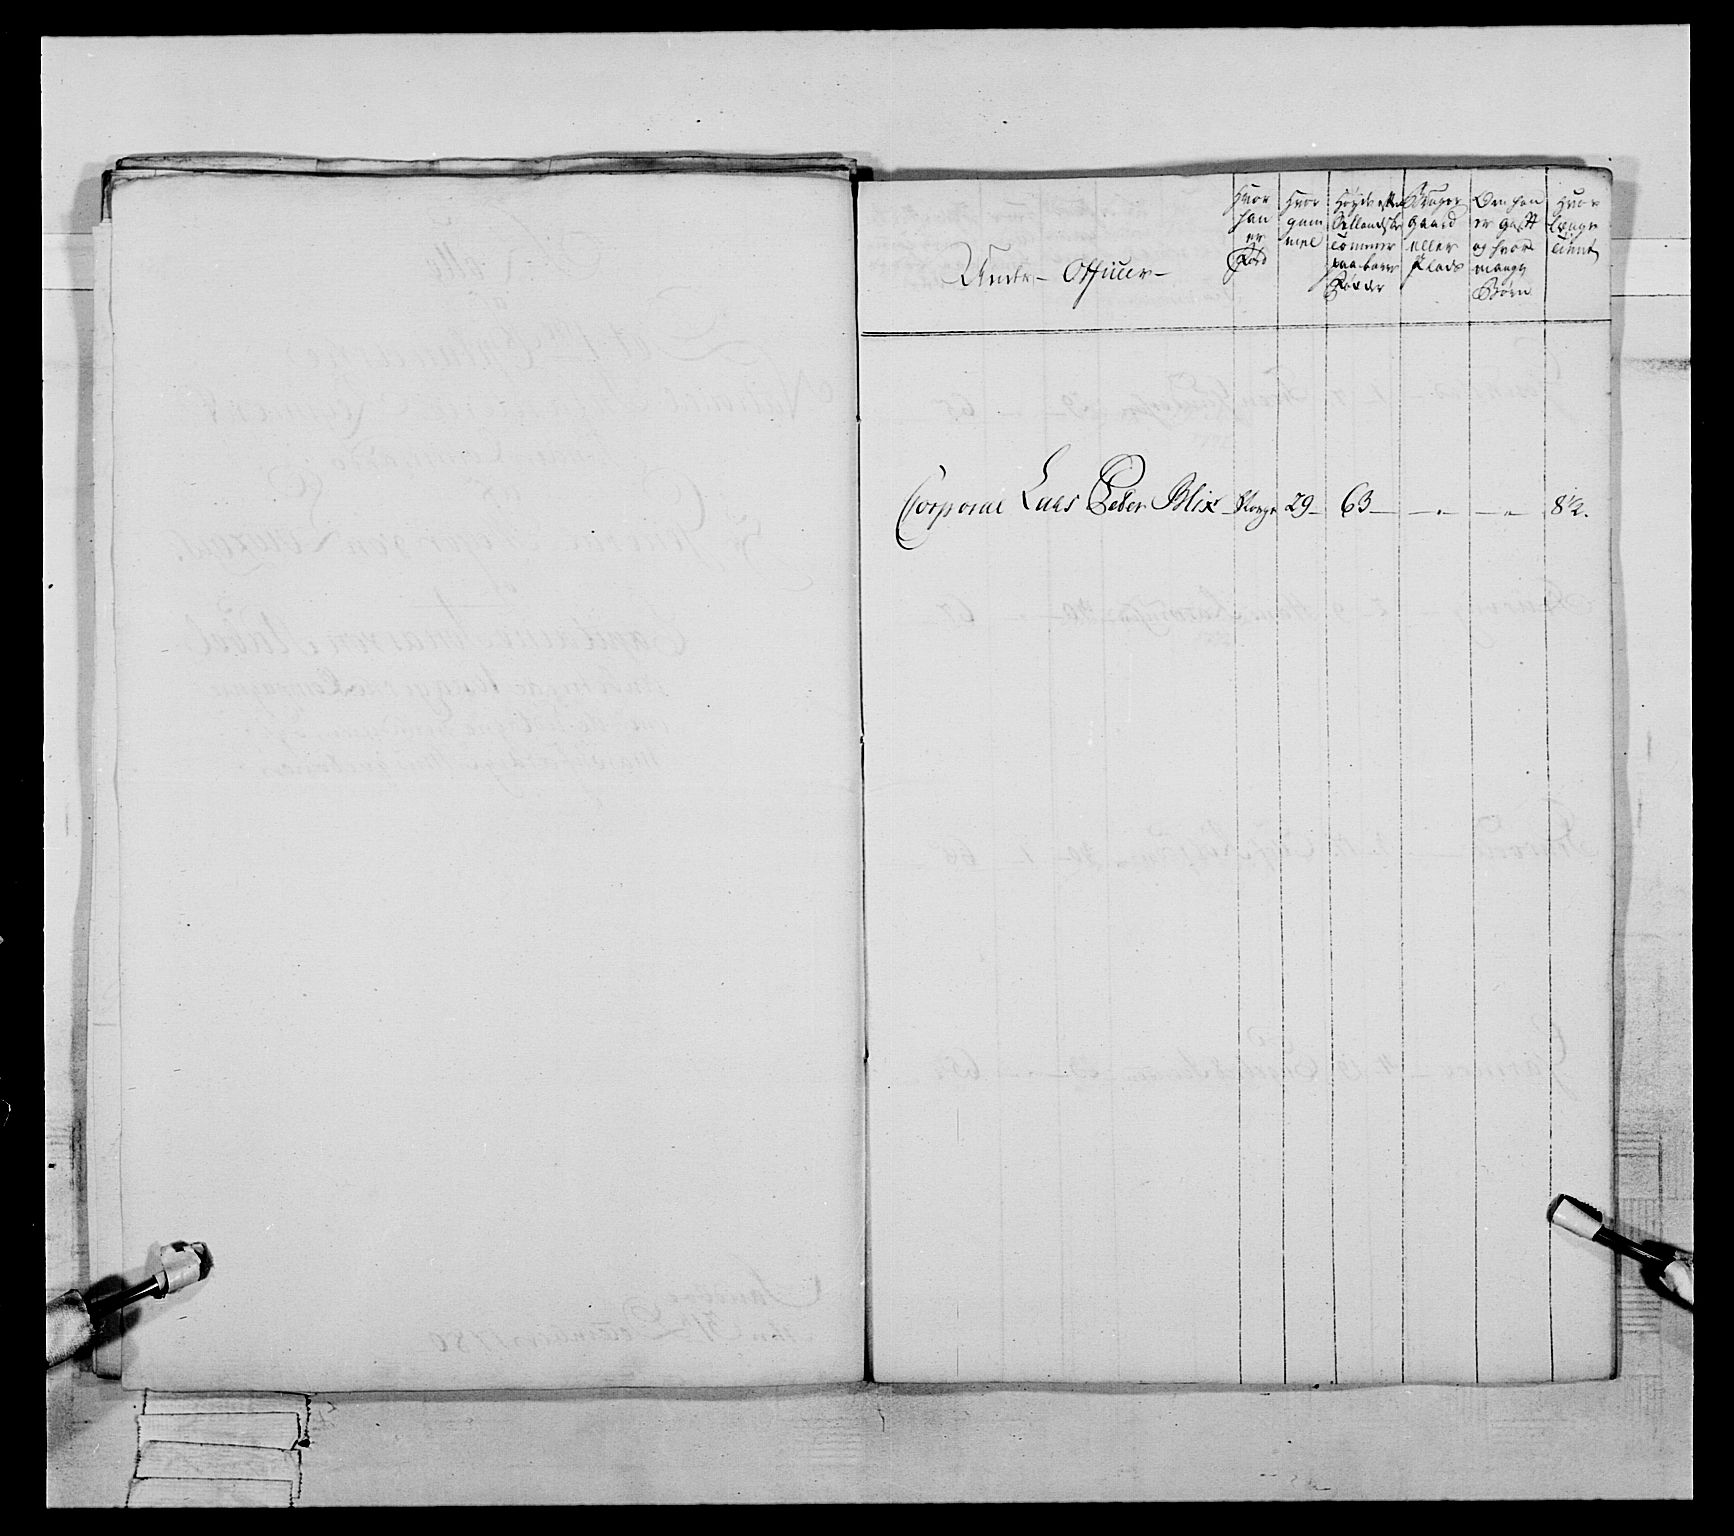 Under-Officier-
Hvor
han
er
Fød
Hvor
gam
mel
Høyde efter
Sellandske
tommer
paa bare
Fødder
Bruger
Gaard
eller
Plads
Om han
er Gift
og hvor
mange
Børn
Hvor
længe
tient
Corporal Lars Peder Blix - Norge 29 - 63 - - „ - - „ - 8½.